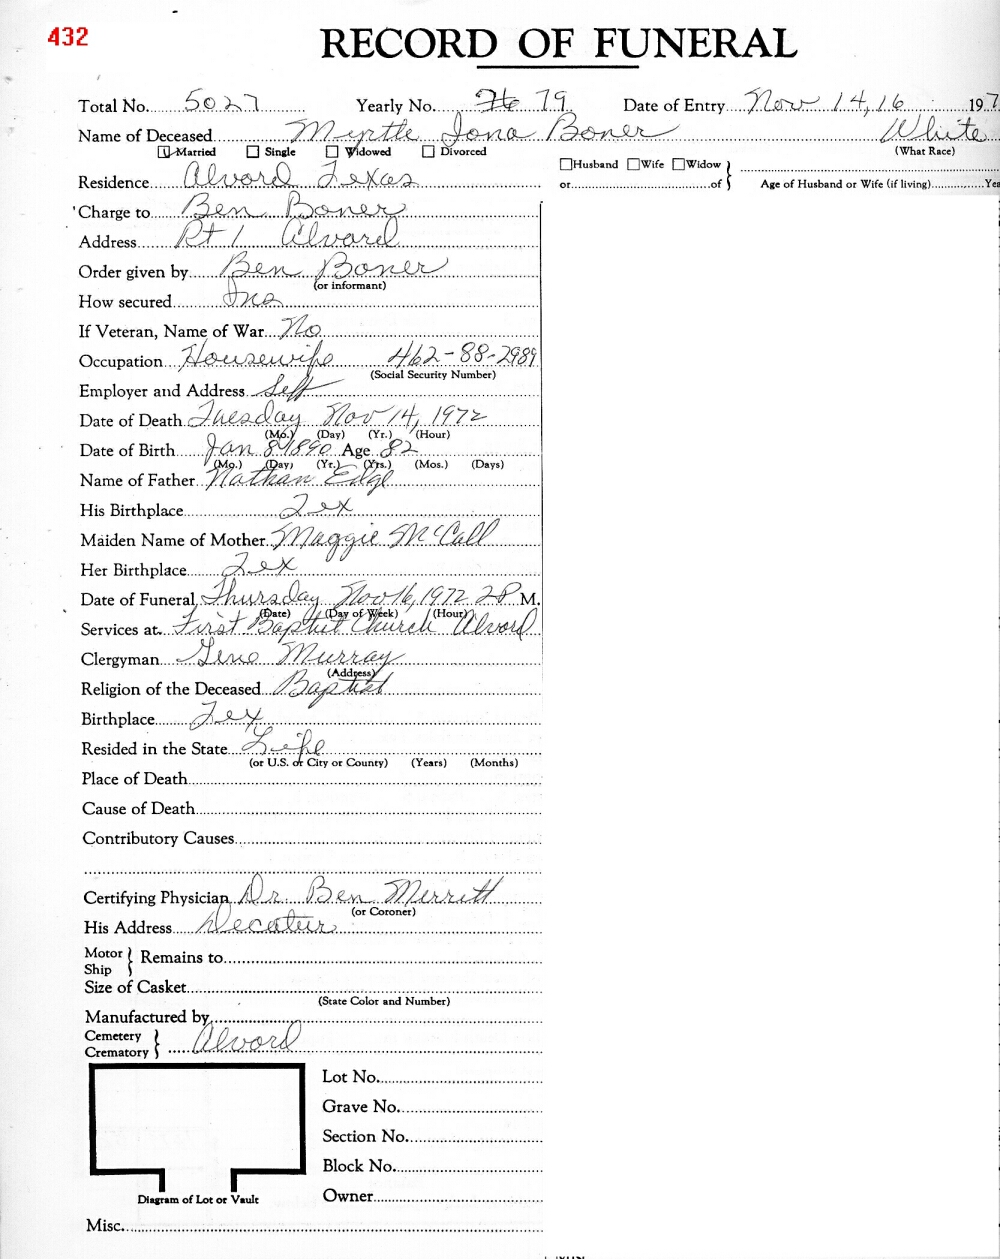 432
RECORD OF FUNERAL
Total No. 5027 Yearly No. 79 Date of Entry Nov 14, 16 197
Name of Deceased Myrtle Iona Boner White
Married Single Widowed Divorced (What Race)
Husband Wife Widow
Residence Alvord Texas or of Age of Husband or Wife (if living) Yea
Charge to Ben Boner
Address Rt 1 Alvord
Order given by Ben Boner
(or informant)
How secured Ins
If Veteran, Name of War No
Occupation Housewife 462-88-2989
(Social Security Number)
Employer and Address Self
Date of Death Tuesday Nov 14, 1972
(Mo.) (Day) (Yr.) (Hour)
Date of Birth Jan 8 1890 Age 82
(Mo.) (Day) (Yr.) (Yrs.) (Mos.) (Days)
Name of Father Nathan Edge
His Birthplace Tex
Maiden Name of Mother Maggie McCall
Her Birthplace Tex
Date of Funeral Thursday Nov 16, 1972 2P M.
(Date) (Day of Week) (Hour)
Services at First Baptist Church Alvord
Clergyman Gene Murray
(Address)
Religion of the Deceased Baptist
Birthplace Tex
Resided in the State Life
(or U.S. or City or County) (Years) (Months)
Place of Death
Cause of Death
Contributory Causes
Certifying Physician Dr. Ben Merritt
(or Coroner)
His Address Decatur
Motor Ship } Remains to
Size of Casket
(State Color and Number)
Manufactured by
Cemetery Crematory } Alvord
Lot No.
Grave No.
Section No.
Block No.
Owner
Diagram of Lot or Vault
Misc.